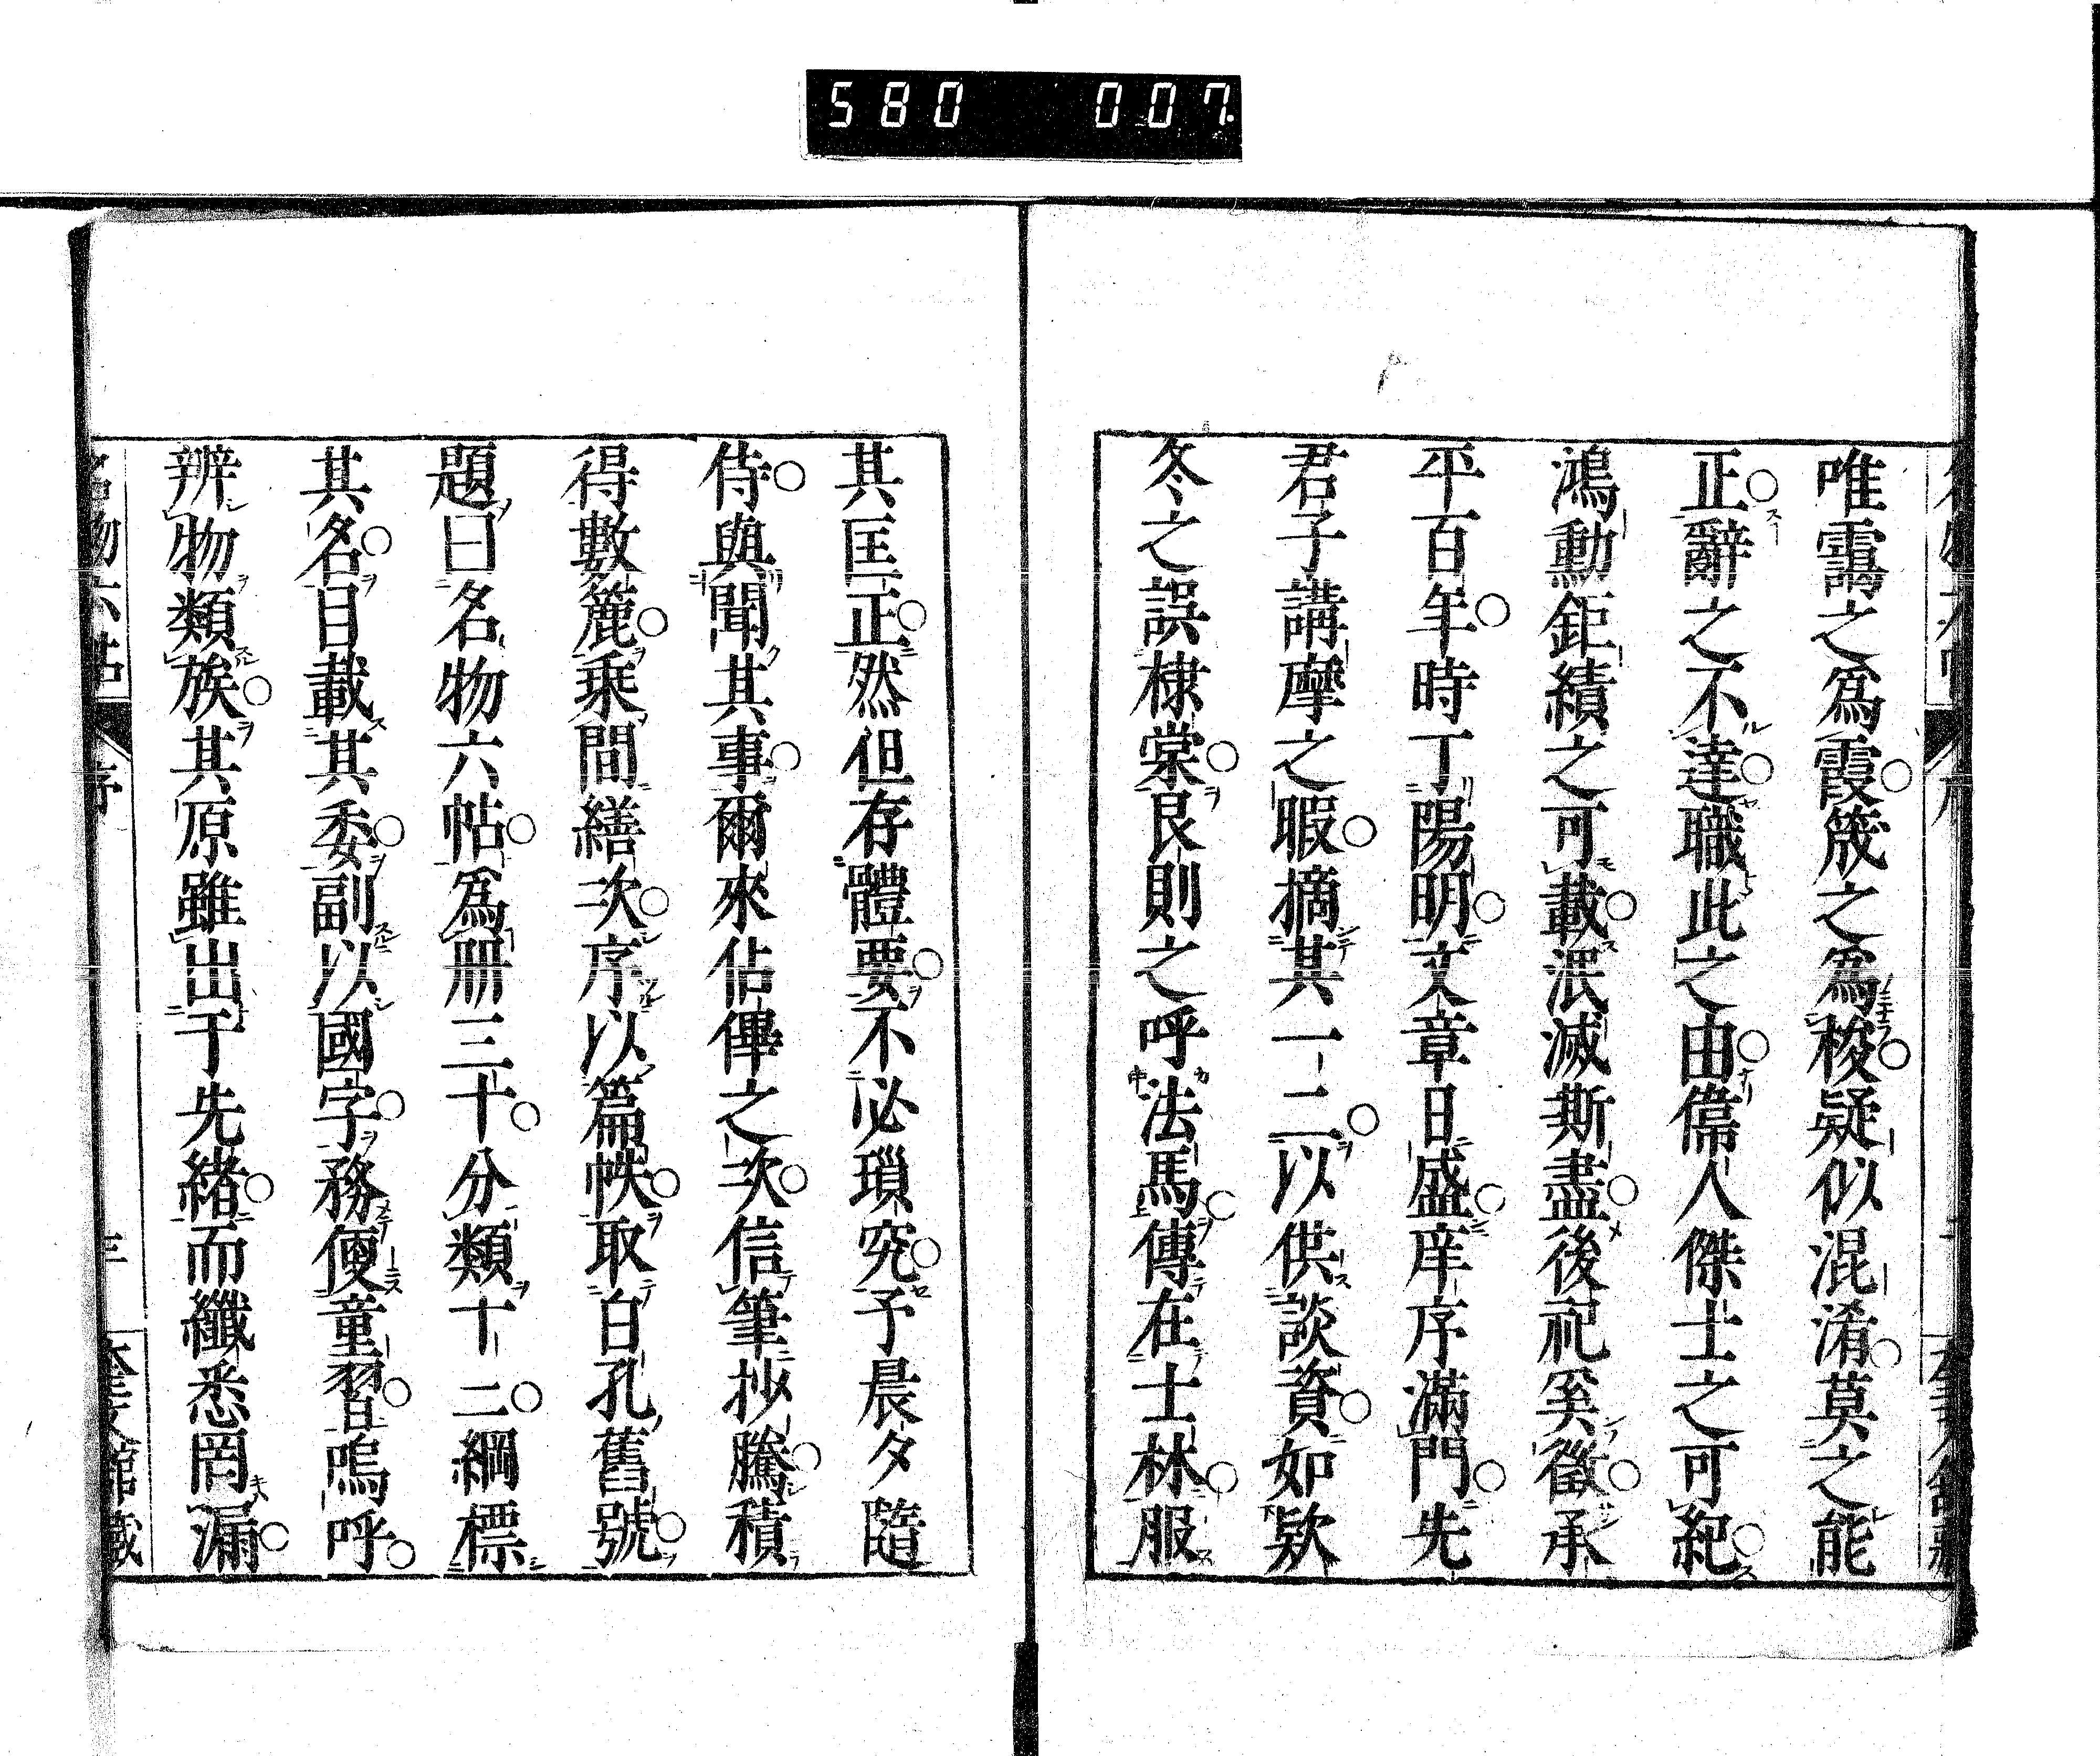 580 007
唯靄之爲霞筬之爲梭疑似混淆莫之能
正辭之不達職此之由偉人傑士之可紀
鴻勳鉅績之可載泯滅斯盡後祀奚徵承
平百年時丁陽明文章日盛庠序滿門先
君子講摩之暇摘其一二以供談資如欵
冬之誤棣棠艮則之呼法馬傳在士林服
其匡正然但存體要不必瑣究予晨夕隨
侍與聞其事爾來佔俾之次信筆抄騰積
得數簏乘間繕次序以篇帙取白孔舊號
題曰名物六帖爲冊三十分類十二綱標
其名目載其委副以國字務便童習嗚呼
辨物類族其原雖出于先緒而纖悉罔漏
名物六帖 序 三 奎文館藏